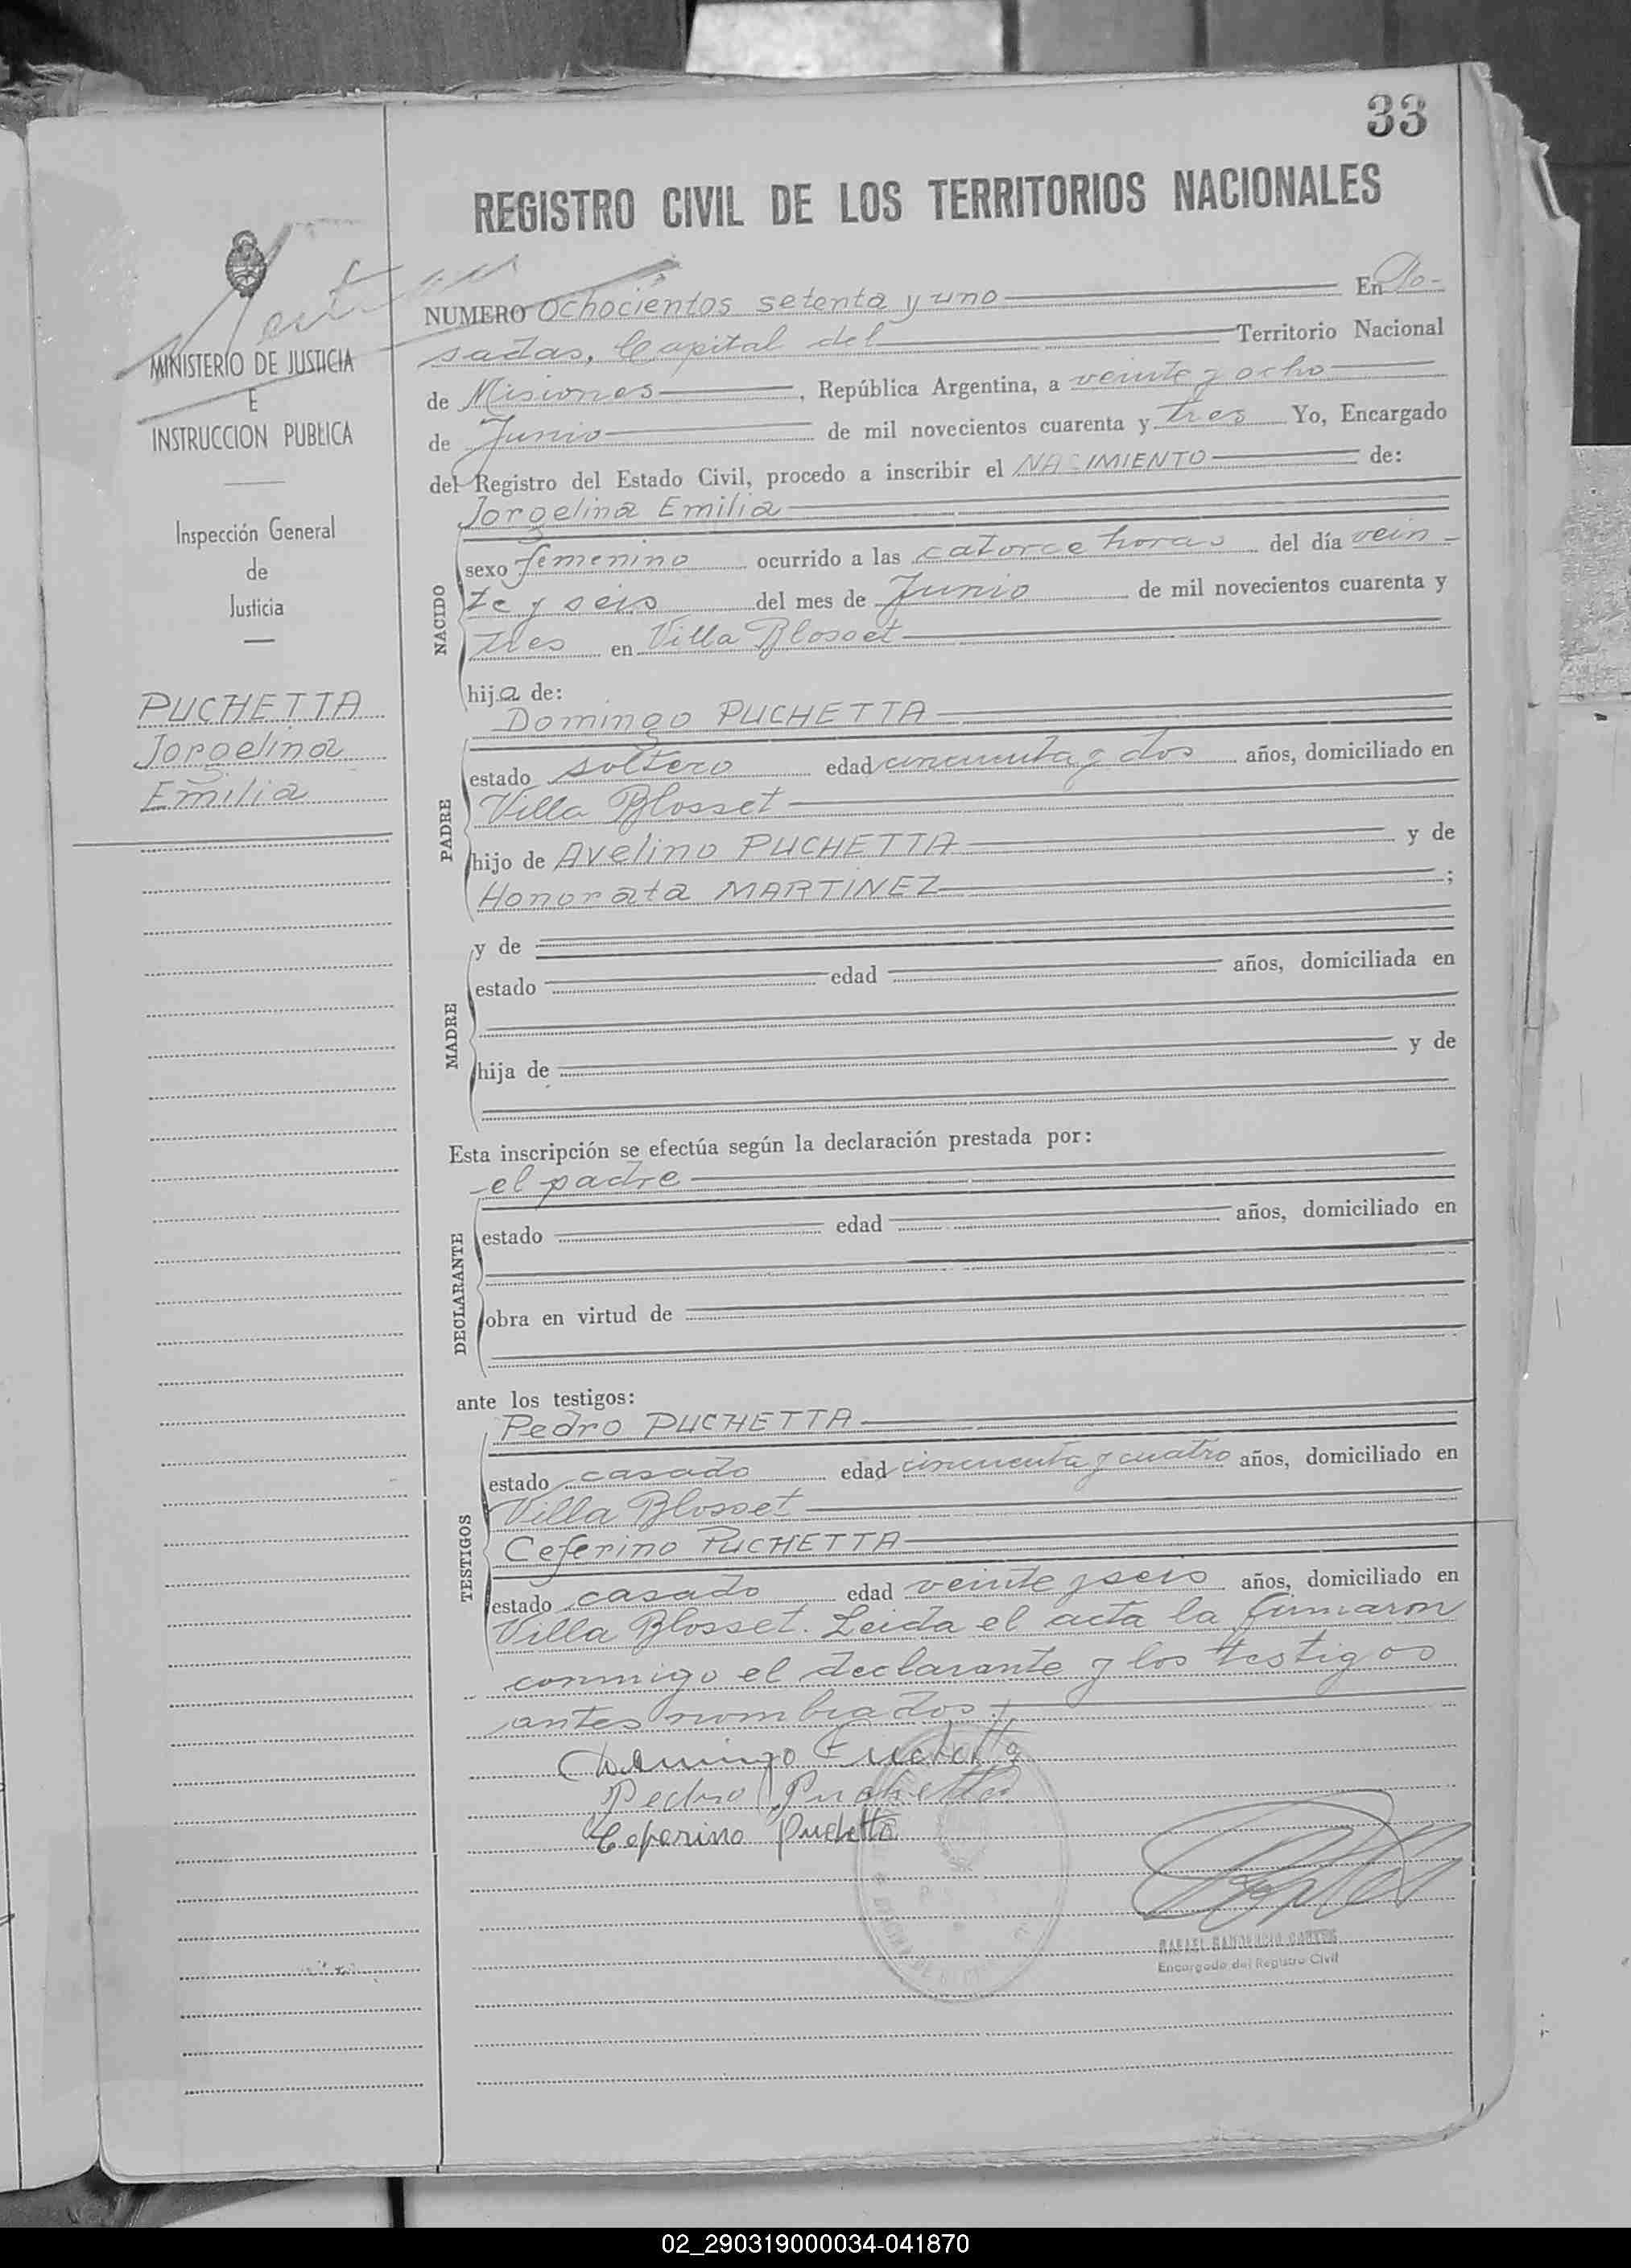 33
REGISTRO CIVIL DE LOS TERRITORIOS NACIONALES
MINISTERIO DE JUSTICIA
E
INSTRUCCION PUBLICA
Inspección General
de
Justicia
PUCHETTA
Jorgelina
Emilia
NUMERO Ochocientos setenta y uno En Po-
sadas, Capital del Territorio Nacional
de Misiones, República Argentina, a veinte y ocho
de Junio de mil novecientos cuarenta y tres Yo, Encargado
del Registro del Estado Civil, procedo a inscribir el NACIMIENTO de:
NACIDO
Jorgelina Emilia
sexo femenino ocurrido a las catorce horas del día vein-
te y seis del mes de Junio de mil novecientos cuarenta y
tres en Villa Blosset
hija de:
PADRE
Domingo PUCHETTA
estado soltero edad cincuenta y dos años, domiciliado en
Villa Blosset
hijo de Avelino PUCHETTA y de
Honorata MARTINEZ ;
MADRE
y de
estado edad años, domiciliada en
hija de y de
Esta inscripción se efectúa según la declaración prestada por:
el padre
DECLARANTE
estado edad años, domiciliado en
obra en virtud de
ante los testigos:
TESTIGOS
Pedro PUCHETTA
estado casado edad cincuenta y cuatro años, domiciliado en
Villa Blosset
Ceferino PUCHETTA
estado casado edad veinte y seis años, domiciliado en
Villa Blosset. Leida el acta la firmaron
conmigo el declarante y los testigos
antes nombrados.
Domingo Puchetta
Pedro Puchetta
Ceferino Puchetta
RAFAEL
Encargado del Registro Civil
02_290319000034-041870